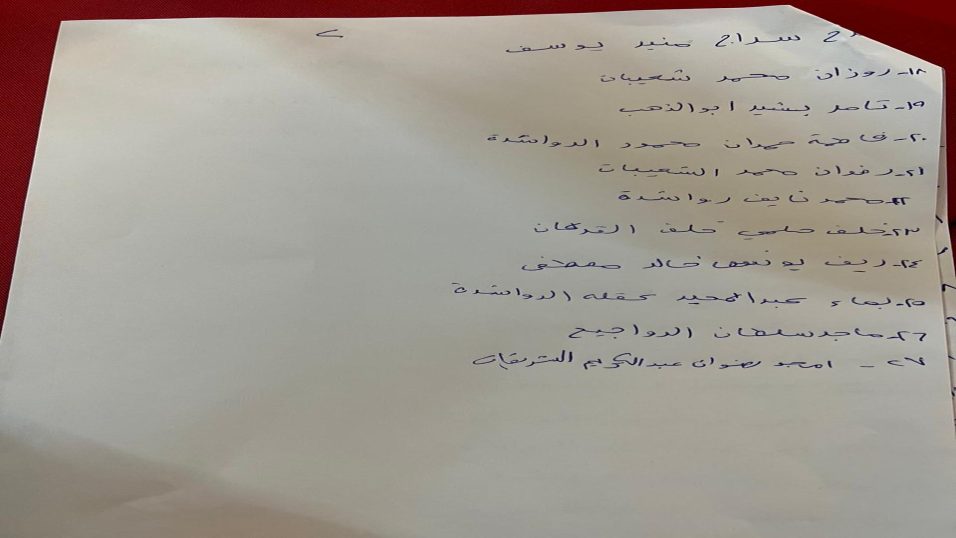 ٢
سراج منير يوسف
١٨- روزان محمد شعيبات
١٩- تامر بشير ابو الذهب
٢٠- فاطمة حمدان محمود الرواشدة
٢١- رضوان محمد الشعيبات
٢٢- محمد نايف رواشدة
٢٣- خلف حلمي خلف القرعان
٢٤- ريف يونس خالد مصطفى
٢٥- بهاء عبدالمجيد عقله الرواشدة
٢٦- ماجد سلطان الرواجيح
٢٧- امجد رضوان عبدالكريم الشريقات